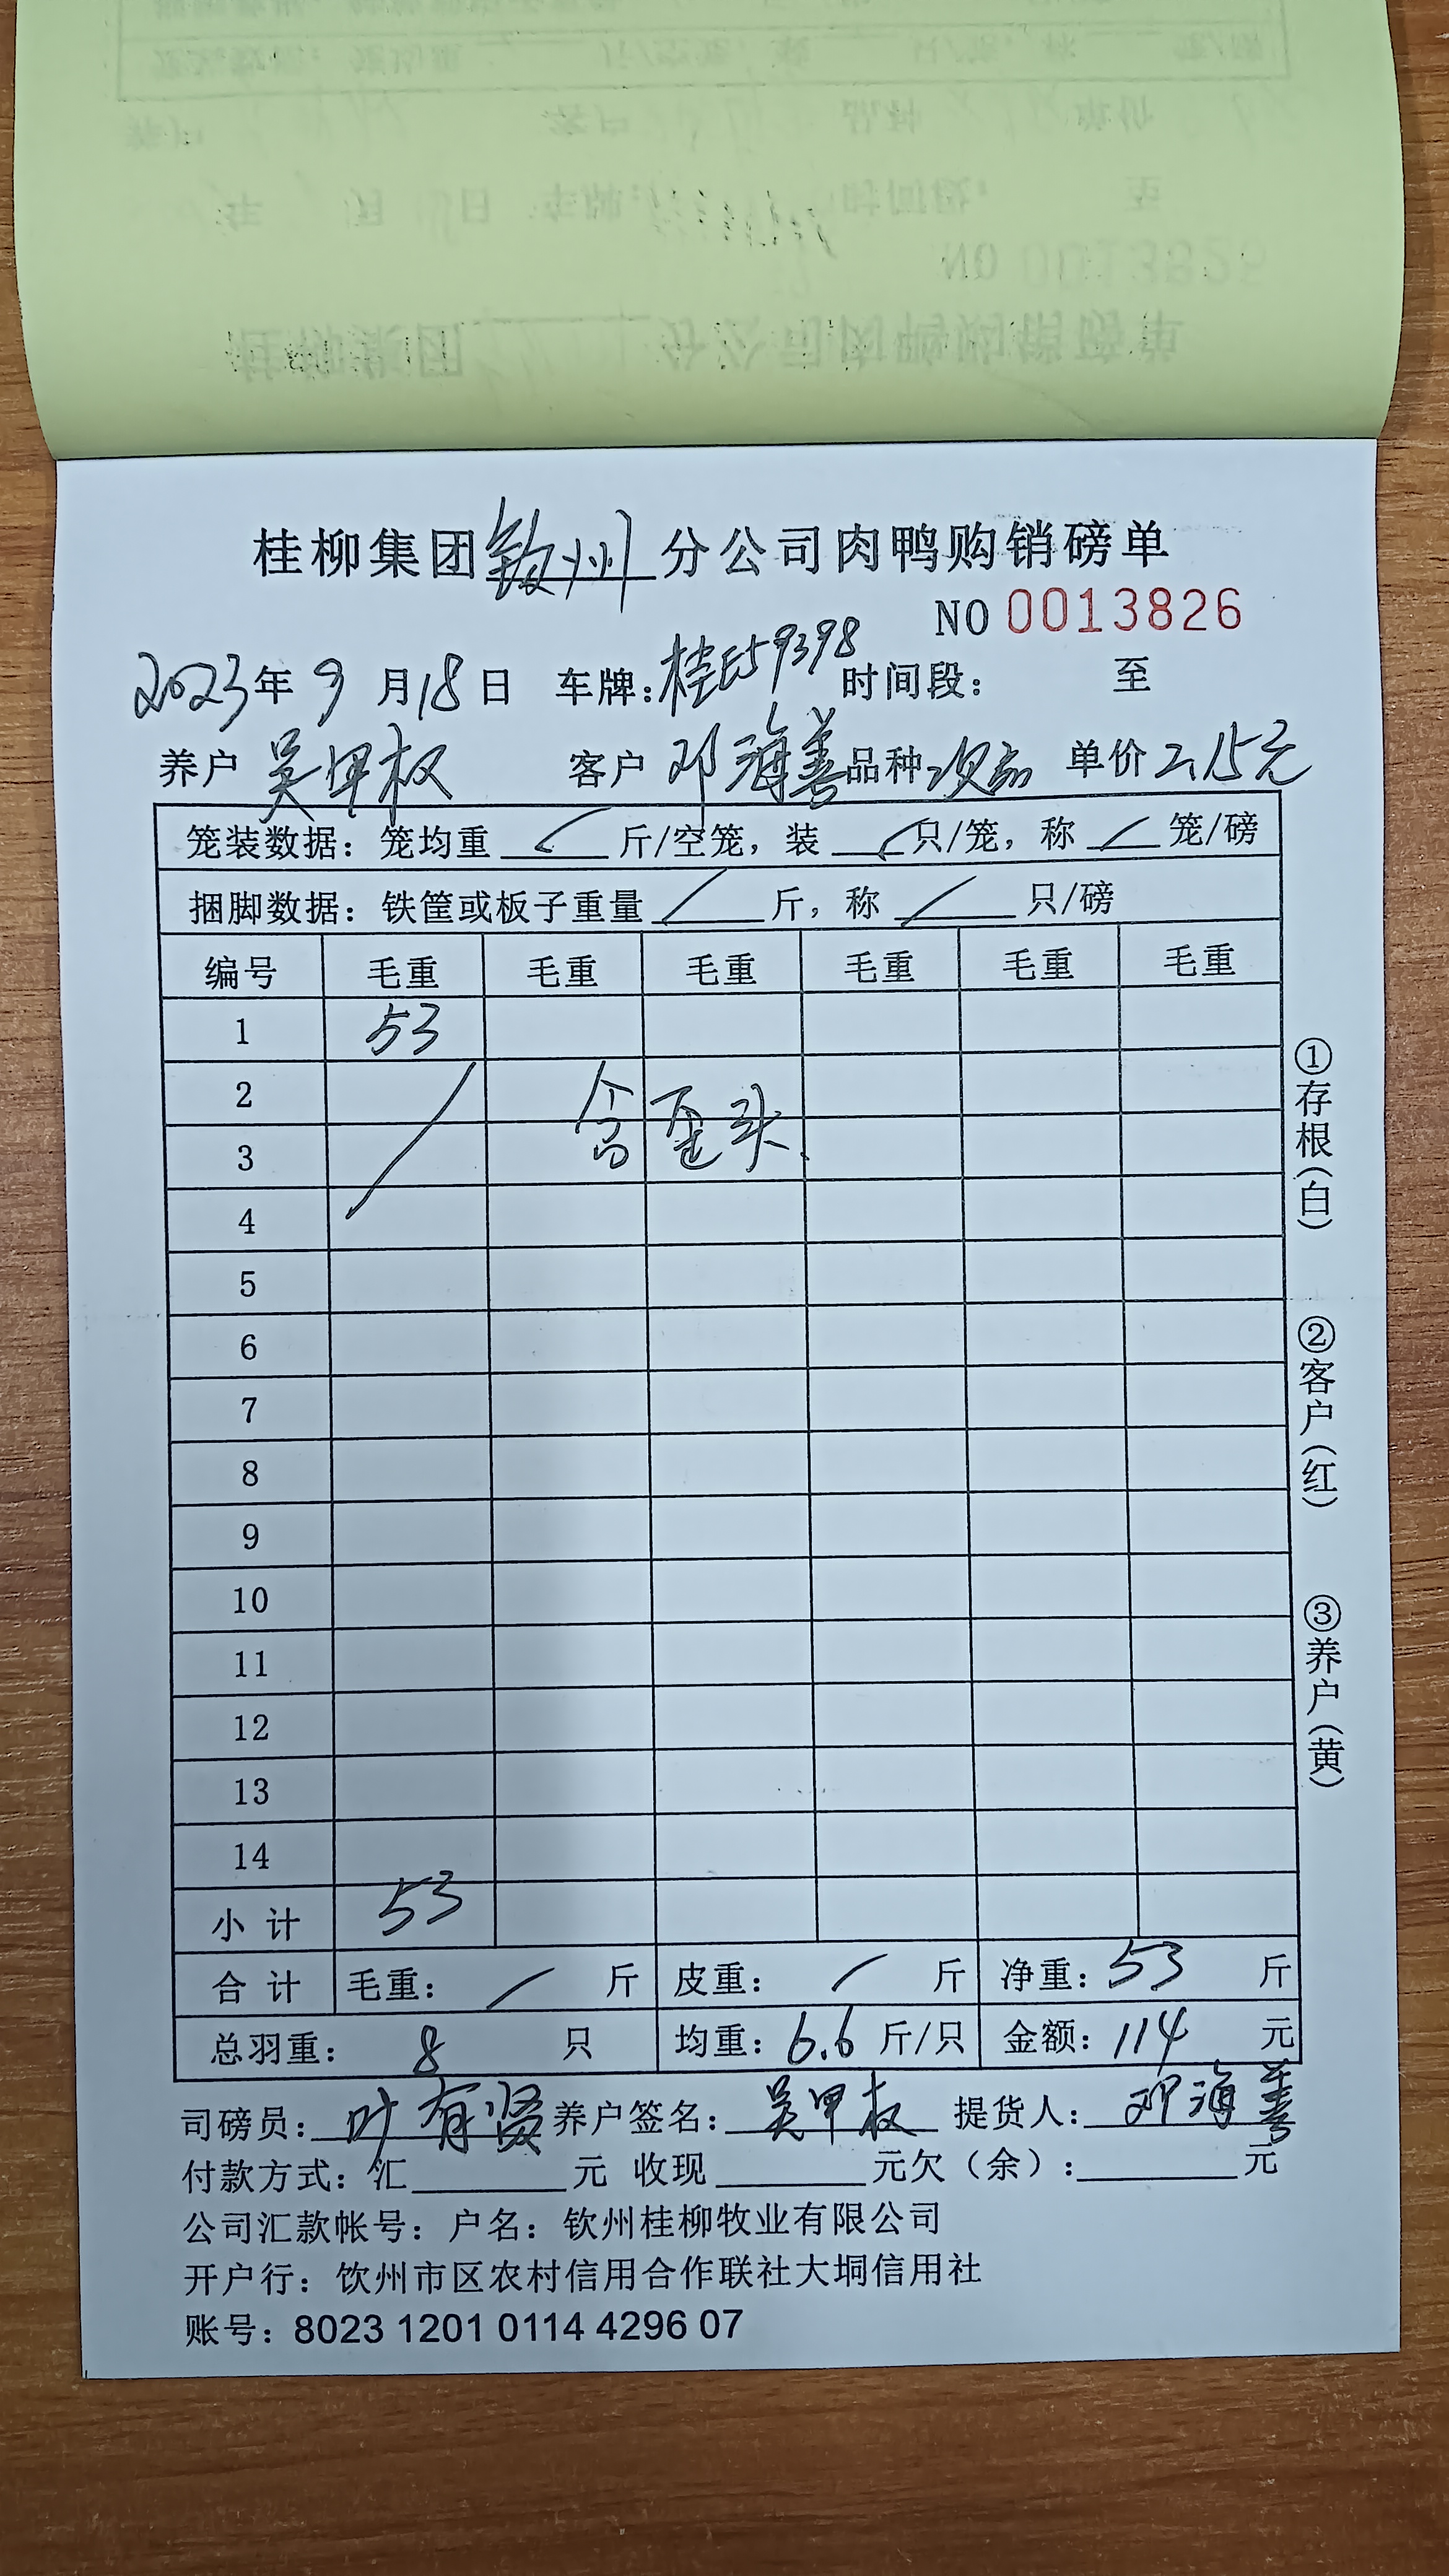 桂柳集团钦州分公司肉鸭购销磅单
NO 0013826
2023年9月18日 车牌:桂E59398 时间段: 至
养户 吴甲权 客户 邓海善 品种 次品 单价 2.15元
笼装数据: 笼均重 / 斤/空笼, 装 / 只/笼, 称 / 笼/磅
捆脚数据: 铁筐或板子重量 / 斤, 称 / 只/磅
编号 毛重 毛重 毛重 毛重 毛重 毛重
1 53
2
含歪头
3
4
5
6
7
8
9
10
11
12
13
14
小计 53
合计 毛重: / 斤 皮重: / 斤 净重: 53 斤
总羽重: 8 只 均重: 6.6 斤/只 金额: 114 元
司磅员: 叶有贤 养户签名: 吴甲权 提货人: 邓海善
付款方式: 汇 元 收现 元欠(余): 元
公司汇款帐号: 户名: 钦州桂柳牧业有限公司
开户行: 钦州市区农村信用合作联社大垌信用社
账号: 8023 1201 0114 4296 07
①存根(白)
②客户(红)
③养户(黄)